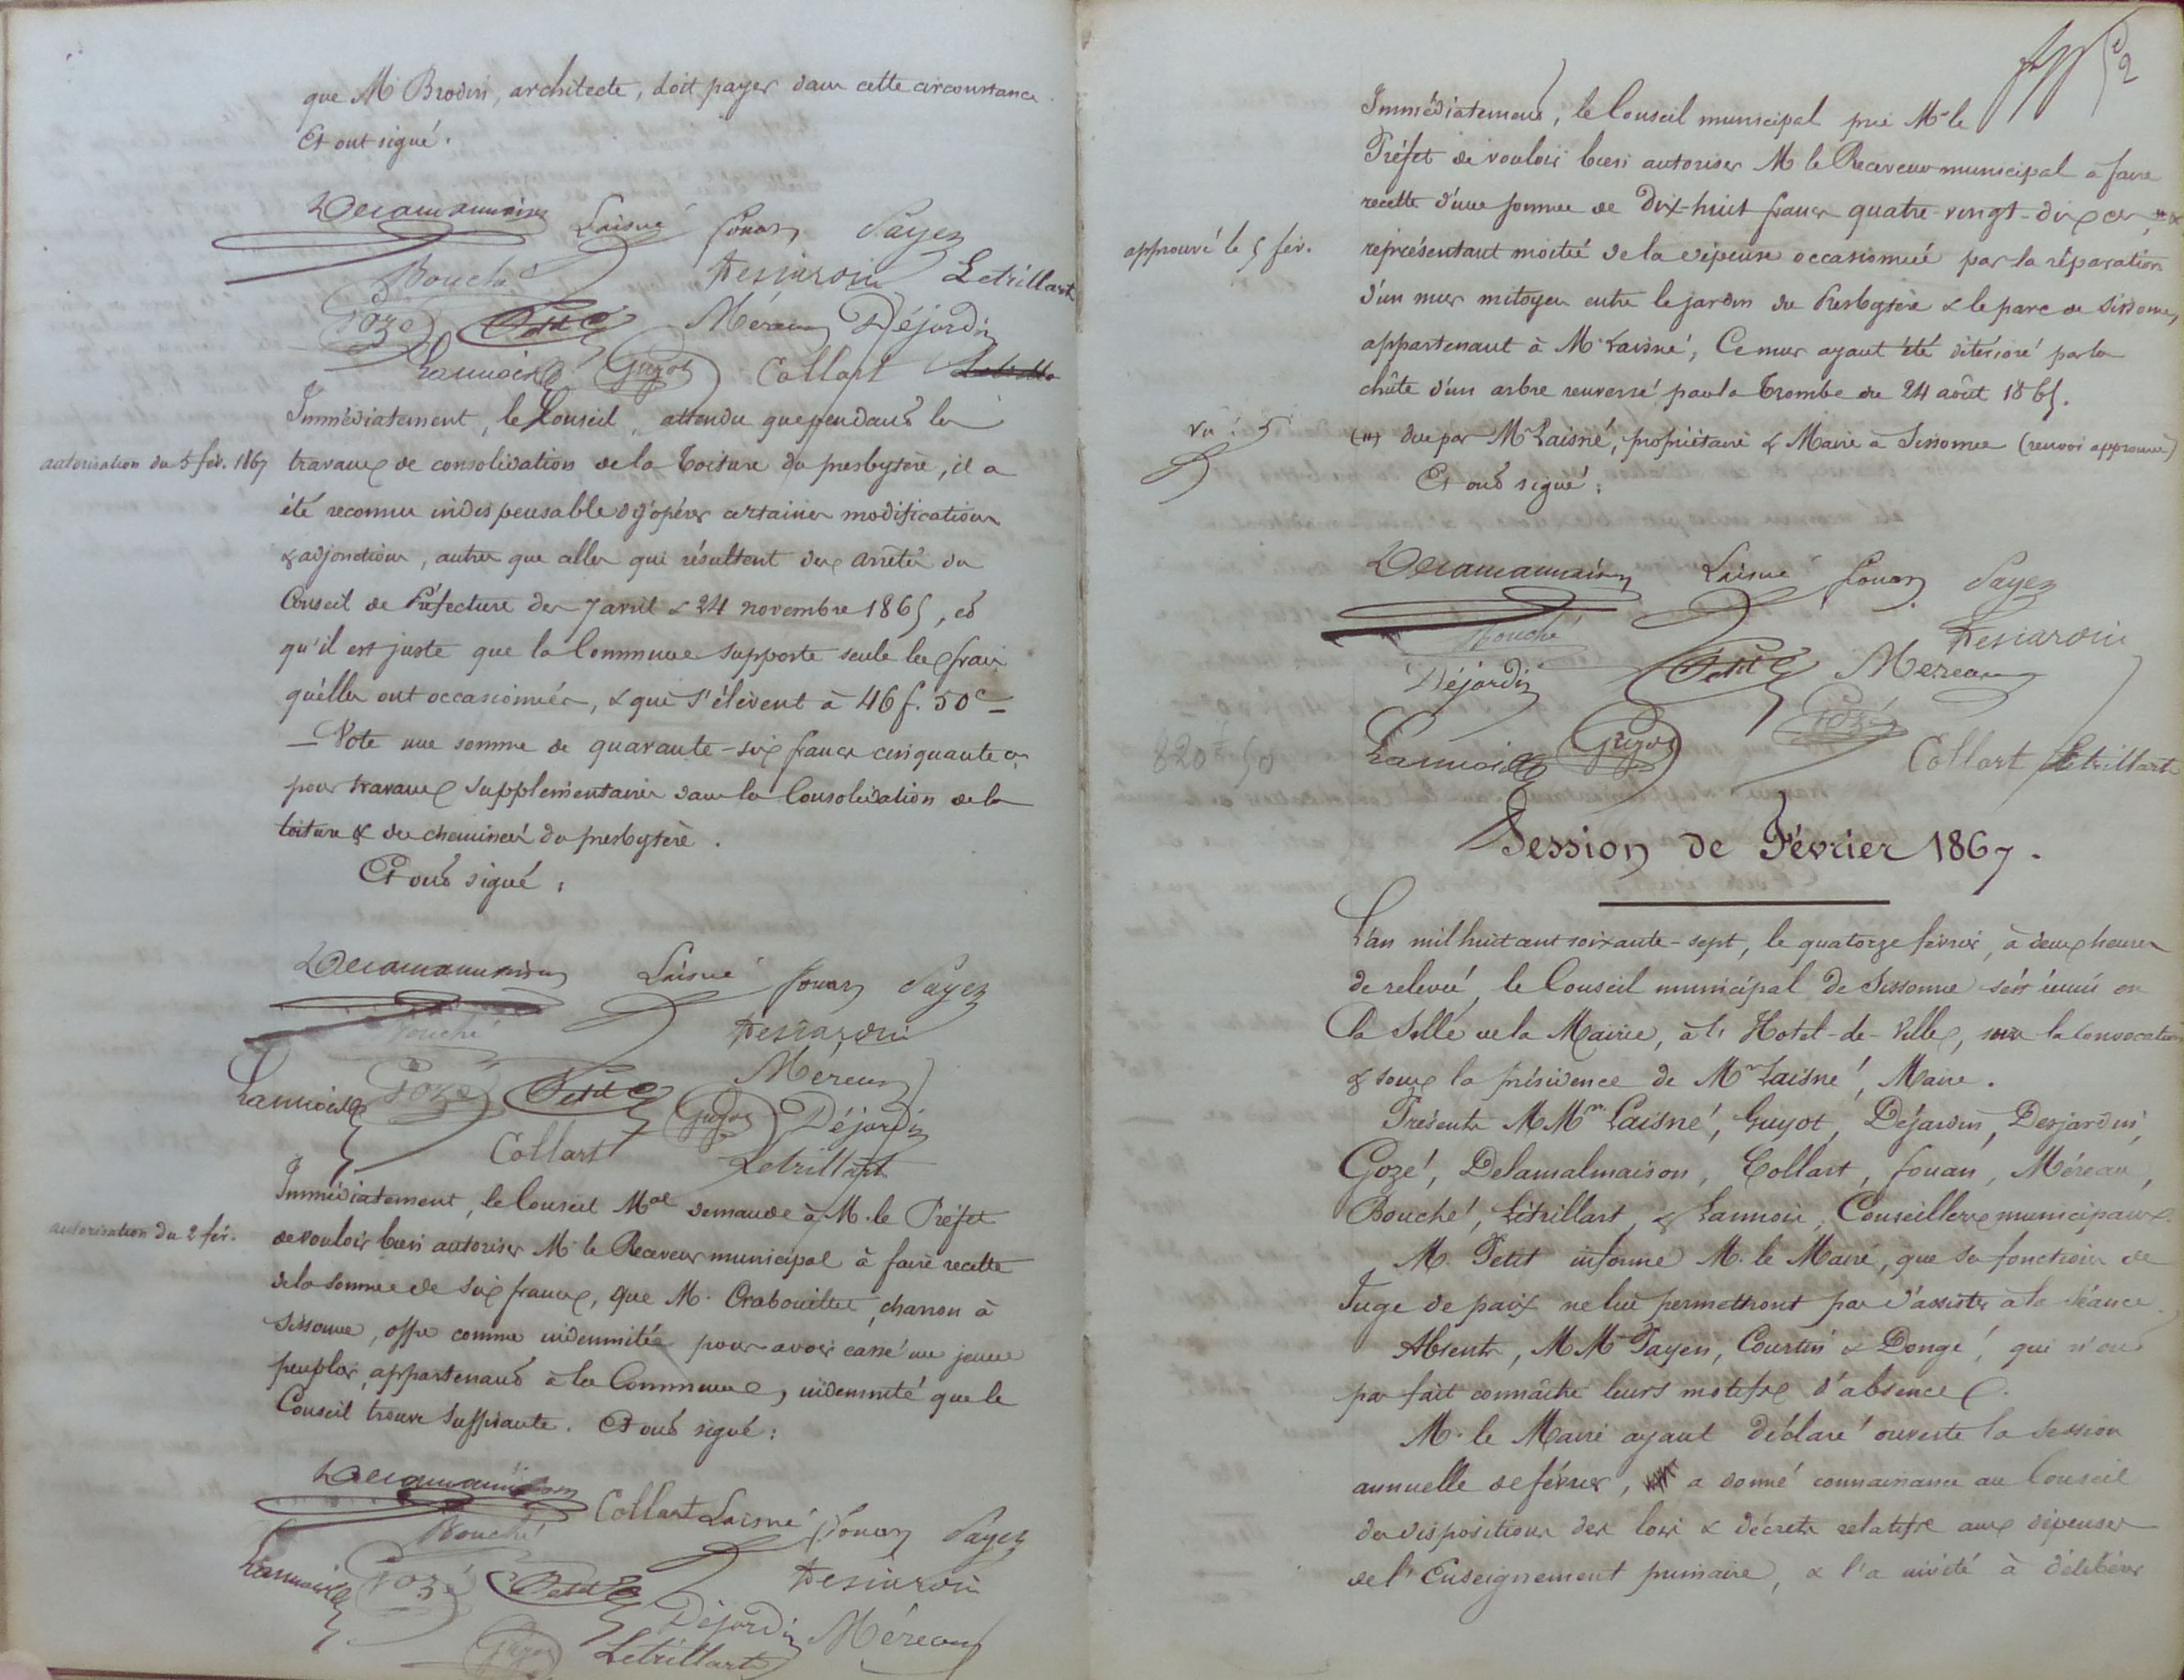 que M Brodin, architecte, doit payer dans cette circonstance.
Et ont signé.
Delamalmaison Laisné fouan Payen
Bouché Desjardin Letrillart
Gozé Petit Méreau Déjardin
Lannois Guyot Collart
Immédiatement, le Conseil, attendu que pendant les
autorisation du 5 fév. 1867
travaux de consolidation de la toiture du presbytère, il a
été reconnu indispensable d'y opérer certaines modifications
& adjonctions, autres que celles qui résultent des arrêtés du
Conseil de Préfecture des 7 avril & 24 novembre 1865, et
qu'il est juste que la Commune supporte seule les frais
qu'elles ont occasionnés, & qui s'élèvent à 46 f. 50 c —
— Vote une somme de quarante-six francs cinquante c.
pour travaux supplémentaires dans la Consolidation de la
toiture & des cheminées du presbytère.
Et ont signé :
Delamalmaison Laisné fouan Payen
Bouché Desjardin
Méreau
Lannois Gozé Petit Guyot Déjardin
Collart Letrillart
Immédiatement, le Conseil Mal demande à M. le Préfet
autorisation du 2 fév.
de vouloir bien autoriser M. le Receveur municipal à faire recette
de la somme de six francs, que M. Crabouillet, charron à
Sissonne, offre comme indemnité pour avoir cassé un jeune
peuplier, appartenant à la Commune, indemnité que le
Conseil trouve suffisante. Et ont signé :
Delamalmaison Collart Laisné fouan Payen
Bouché
Lannois Gozé Petit Desjardin
Déjardin Méreau
Guyot Letrillart
Immédiatement, le Conseil municipal prie Mr le
Préfet de vouloir bien autoriser M. le Receveur municipal à faire
recette d'une somme de Dix-huit francs quatre-vingt-dix c.,
approuvé le 5 fév.
représentant moitié de la dépense occasionnée par la réparation
d'un mur mitoyen entre le jardin du Presbytère & le parc de Sissonne,
appartenant à M. Laisné, Ce mur ayant été détérioré par la
chûte d'un arbre renversé par la trombe du 24 août 1865.
vu :
(#) due par M. Laisné, propriétaire & Maire à Sissonne (renvoi approuvé)
Et ont signé :
Delamalmaison Laisné fouan Payen
Bouché Desjardin
Déjardin Petit Mereau
Lannois Guyot Gozé
820 f 50
Collart Letrillart
Session de Février 1867.
L'an mil huit cent soixante-sept, le quatorze février, à deux heures
de relevée, le Conseil municipal de Sissonne s'est réuni en
la Salle de la Mairie, à l'Hotel-de-Ville, sur la convocation
& sous la présidence de Mr Laisné, Maire.
Présents MMrs Laisné, Guyot, Déjardin, Desjardin,
Gozé, Delamalmaison, Collart, fouan, Méreau,
Bouché, Letrillart, & Lannois, Conseillers municipaux.
M. Petit informe M. le Maire, que ses fonctions de
Juge de paix ne lui permettront pas d'assister à la séance.
Absents, MM. Payen, Courtin & Dongé, qui n'ont
pas fait connaître leurs motifs d'absence.
M. le Maire ayant déclaré ouverte la session
annuelle de février, a donné connaissance au Conseil
des dispositions des lois & décrets relatifs aux dépenses
de l'Enseignement primaire, & l'a invité à délibérer